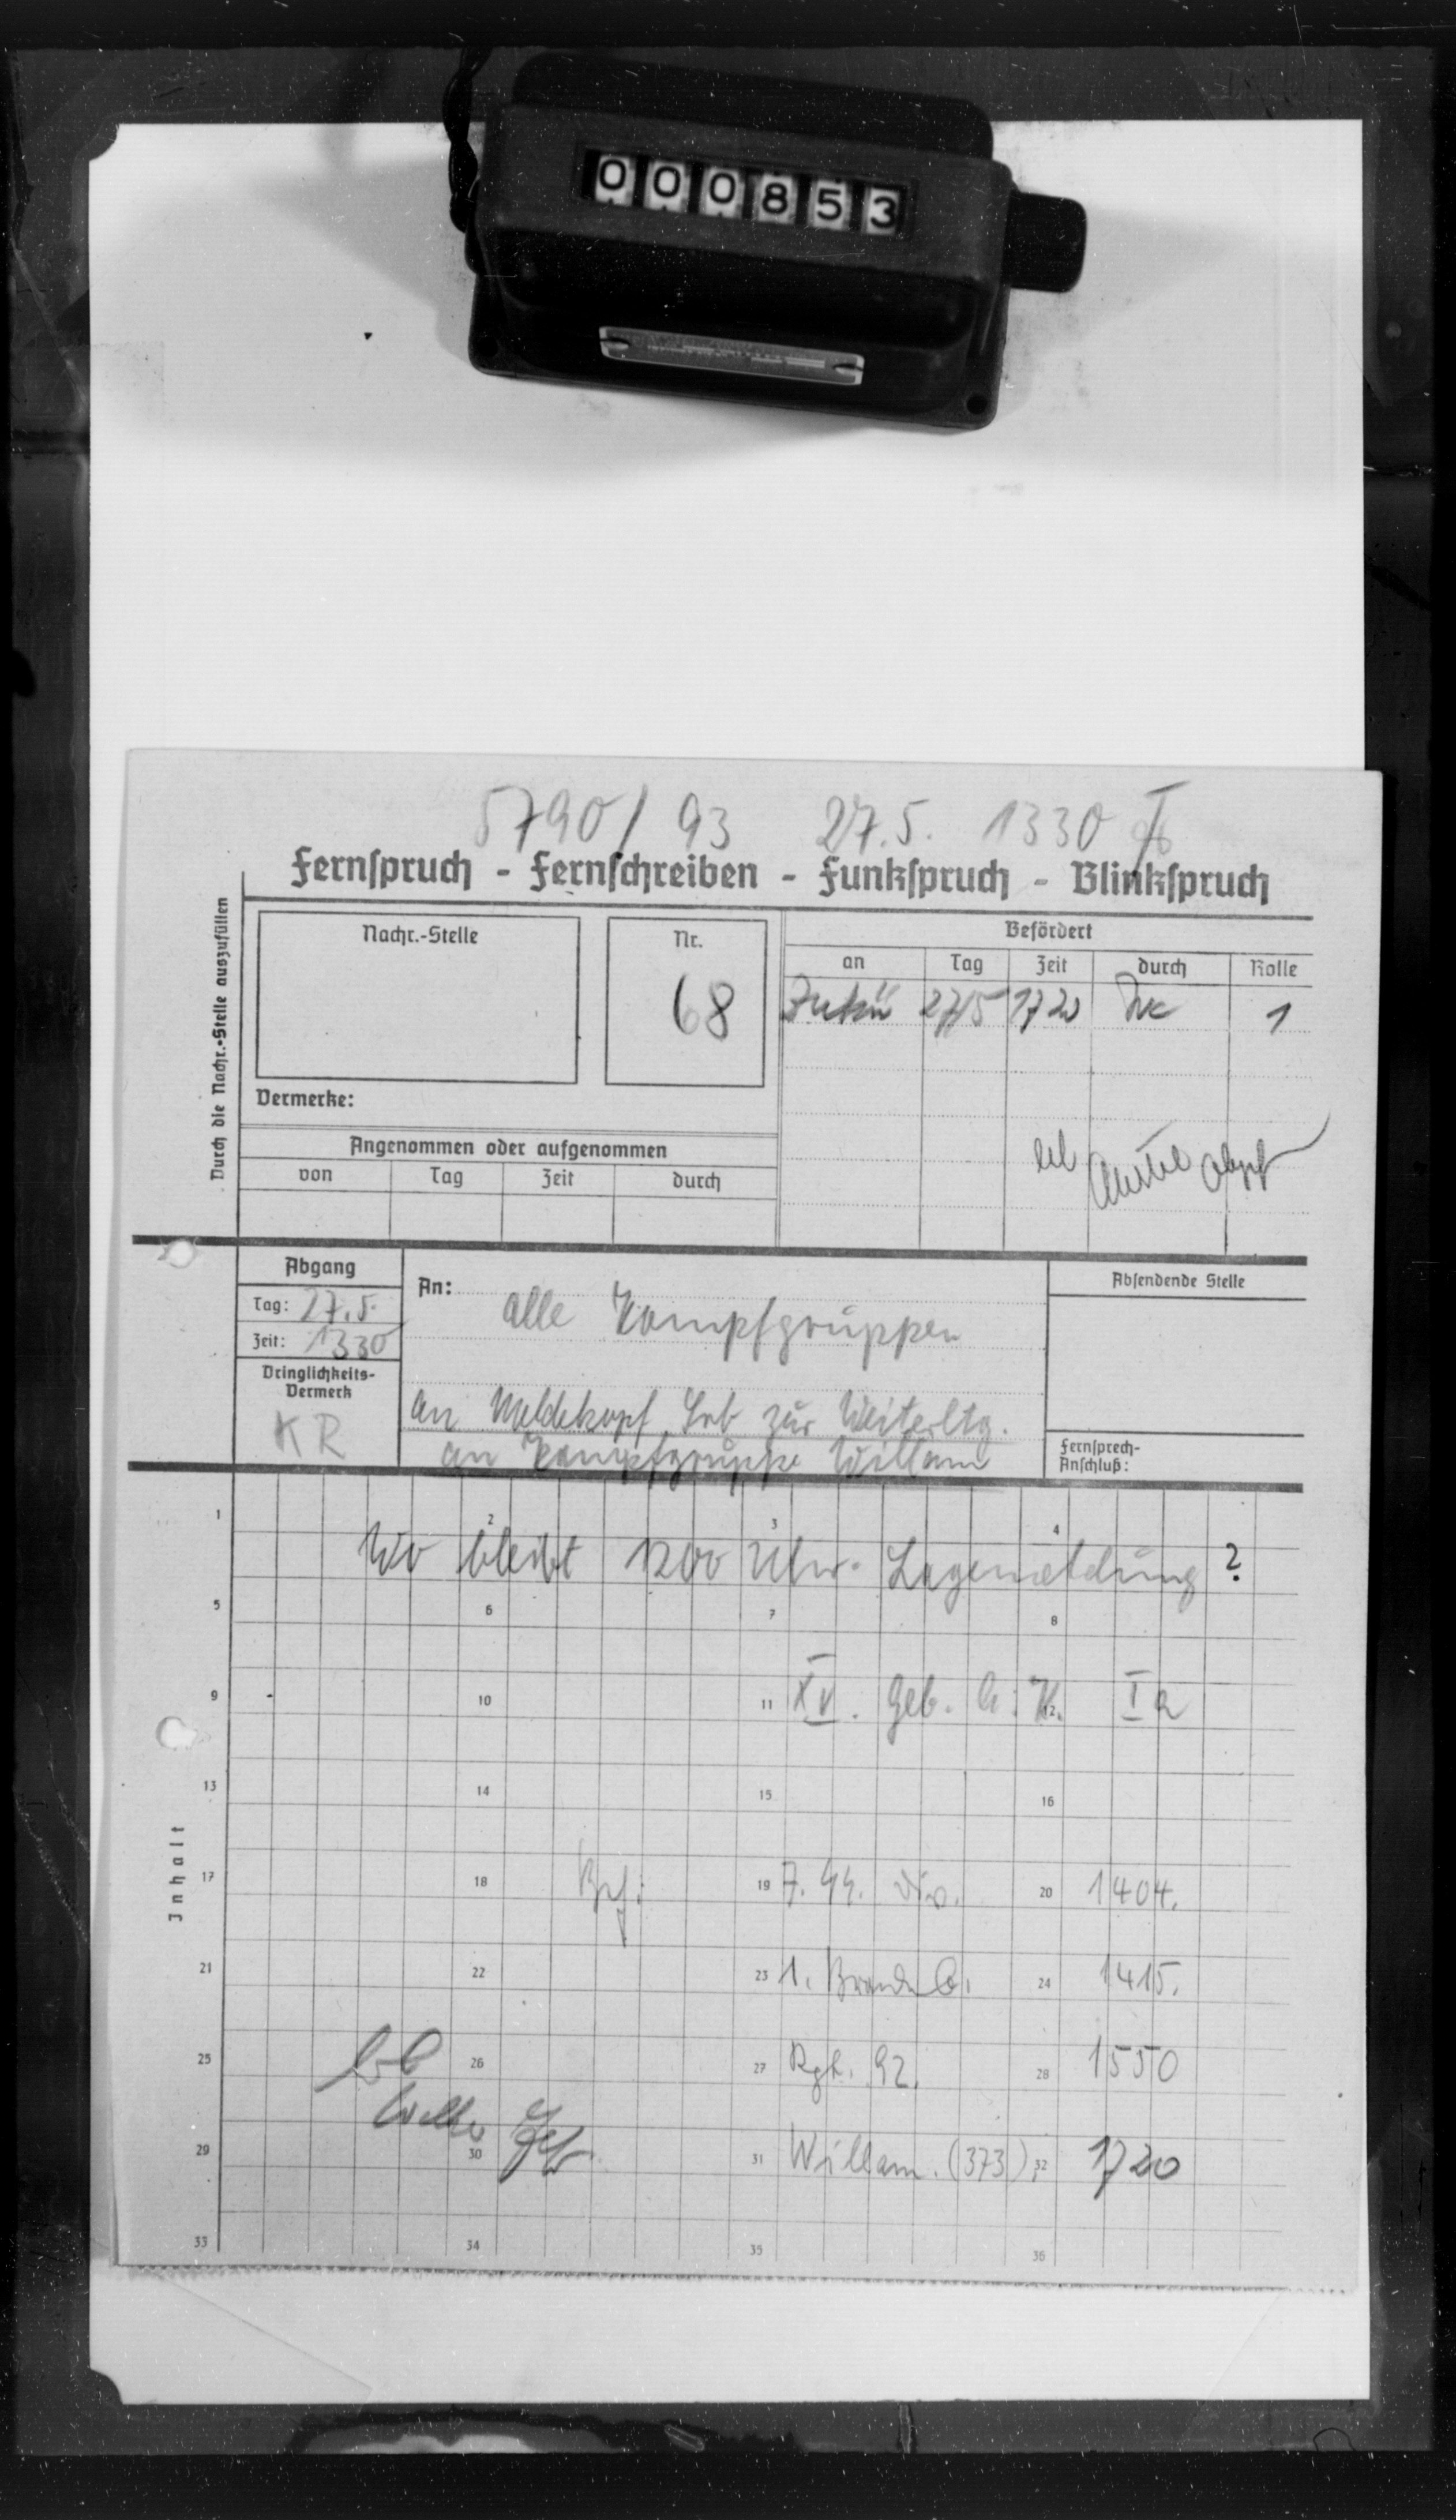 000853
5790/ 93 27.5. 1330
Fernspruch - Fernschreiben - Funkspruch - Blinkspruch
Durch die Nachr.-Stelle auszufüllen
Nachr.-Stelle
Nr.
68
Befördert
an Tag Zeit durch Rolle
27/5 1720 1
Vermerke:
Angenommen oder aufgenommen
von Tag Zeit durch
Abgang
Tag: 27.5.
Zeit: 1330
Dringlichkeits-
Vermerk
KR
An: alle Kampfgruppen
an Meldekopf zur Weiterltg.
an Kampfgruppe Willam
Absendende Stelle
Fernsprech-
Anschluß:
Inhalt
1 2 3 4
Wo bleibt 1200 Uhr-Lagemeldung?
5 6 7 8
9 10 11 12
XV. Geb. A. K. Ia
13 14 15 16
17 18 19 7. SS. Div. 20 1404.
21 22 23 1. Brandb. 24 1415.
25 26 27 Rgt. 92. 28 1550
29 30 31 Willam. (373) 32 1720
33 34 35 36